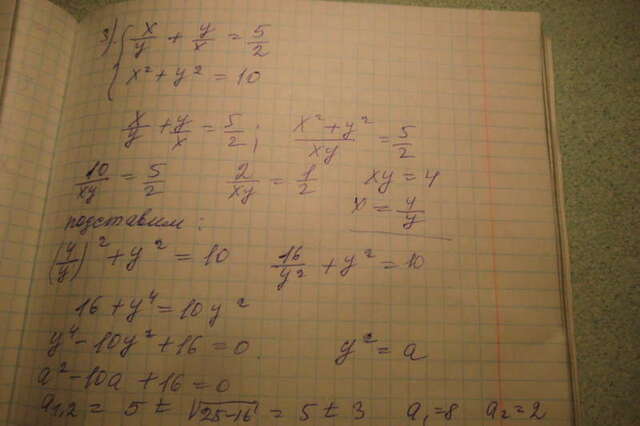 3) { x/y + y/x = 5/2
x² + y² = 10
x/y + y/x = 5/2 ; (x² + y²)/xy = 5/2
10/xy = 5/2 2/xy = 1/2 xy = 4
подставим: x = 4/y
(4/y)² + y² = 10 16/y² + y² = 10
16 + y⁴ = 10y²
y⁴ - 10y² + 16 = 0. y² = a
a² - 10a + 16 = 0
a₁,₂ = 5 ± √(25-16) = 5 ± 3 a₁ = 8 a₂ = 2